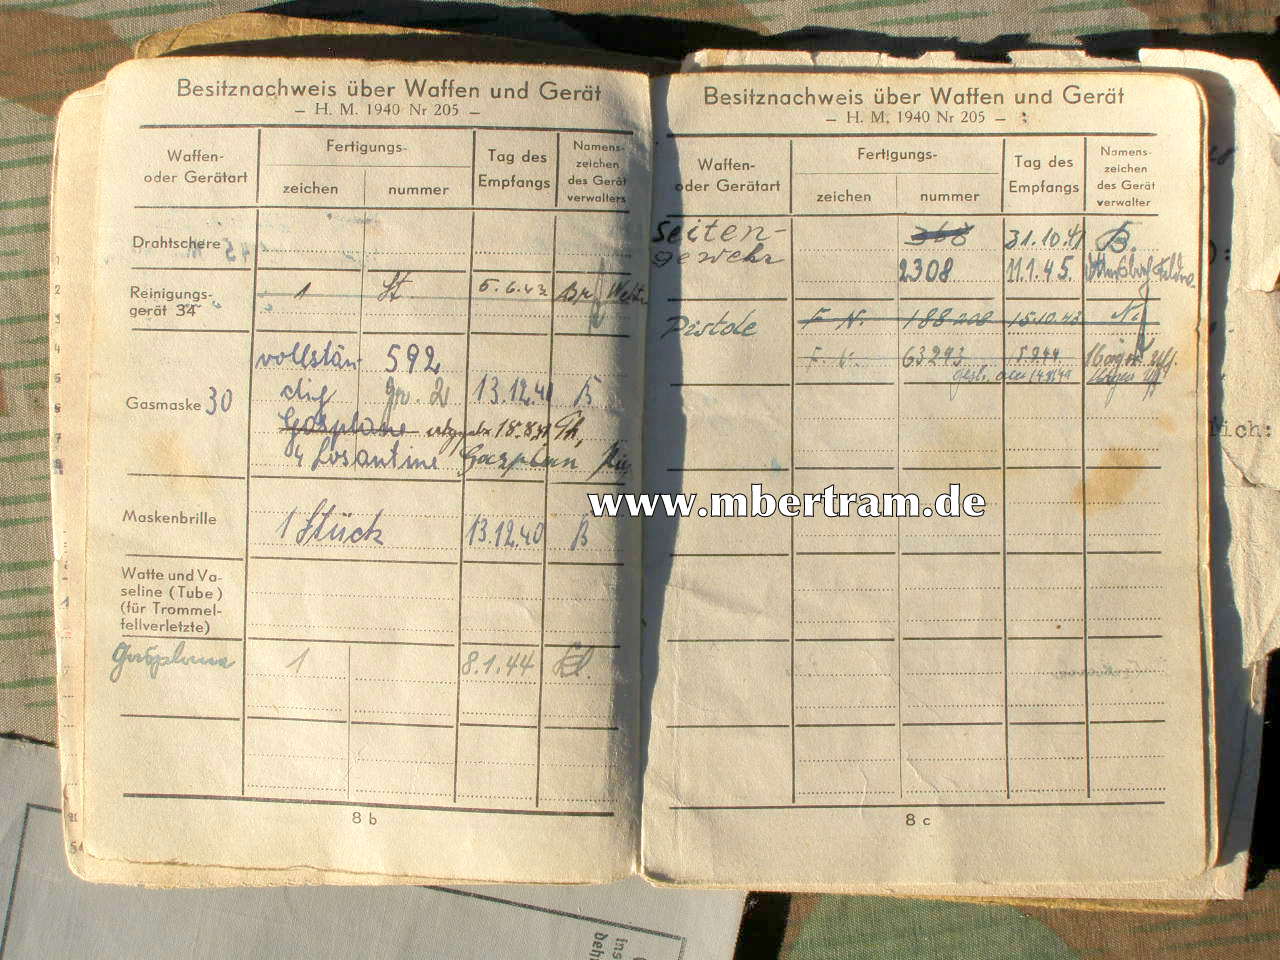 Besitznachweis über Waffen und Gerät
– H. M. 1940 Nr 205 –
Waffen-
oder Gerätart
Fertigungs-
zeichen
nummer
Tag des
Empfangs
Namens-
zeichen
des Gerät
verwalters
Drahtschere
Reinigungs-
gerät 34
1 St.
Gasmaske 30
vollstän- 592
dig gr. 2 13.12.40 B
Gasplane 18.8.41
4 Losantine Gasplan
Maskenbrille
1 Stück 13.12.40 B
Watte und Va-
seline (Tube)
(für Trommel-
fellverletzte)
Gasplane 1 8.1.44
8 b
Besitznachweis über Waffen und Gerät
– H. M. 1940 Nr 205 –
Waffen-
oder Gerätart
Fertigungs-
zeichen
nummer
Tag des
Empfangs
Namens-
zeichen
des Gerät
verwalters
Seiten- 368 31.10.41 B.
gewehr 2308 11.1.45.
Pistole F. N. 188208 15.10.43 N.
63293
8 c
www.mbertram.de